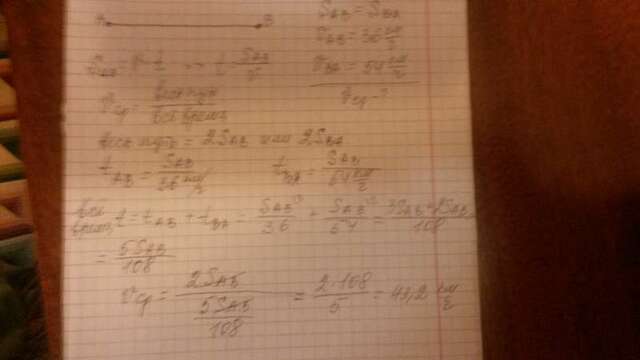 A B
S_AB = S_BA
V_AB = 36 км/ч
V_BA = 54 км/ч
V_ср - ?
S_AB = V · t => t = S_AB / V
V_ср = весь путь / всё время
весь путь = 2S_AB или 2S_BA
t_AB = S_AB / 36 км/ч t_BA = S_AB / 54 км/ч
всё время, t = t_AB + t_BA = S_AB / 36 + S_AB / 54 = 3S_AB + 2S_AB / 108
= 5S_AB / 108
V_ср = 2S_AB / 5S_AB / 108 = 2·108 / 5 = 43,2 км/ч